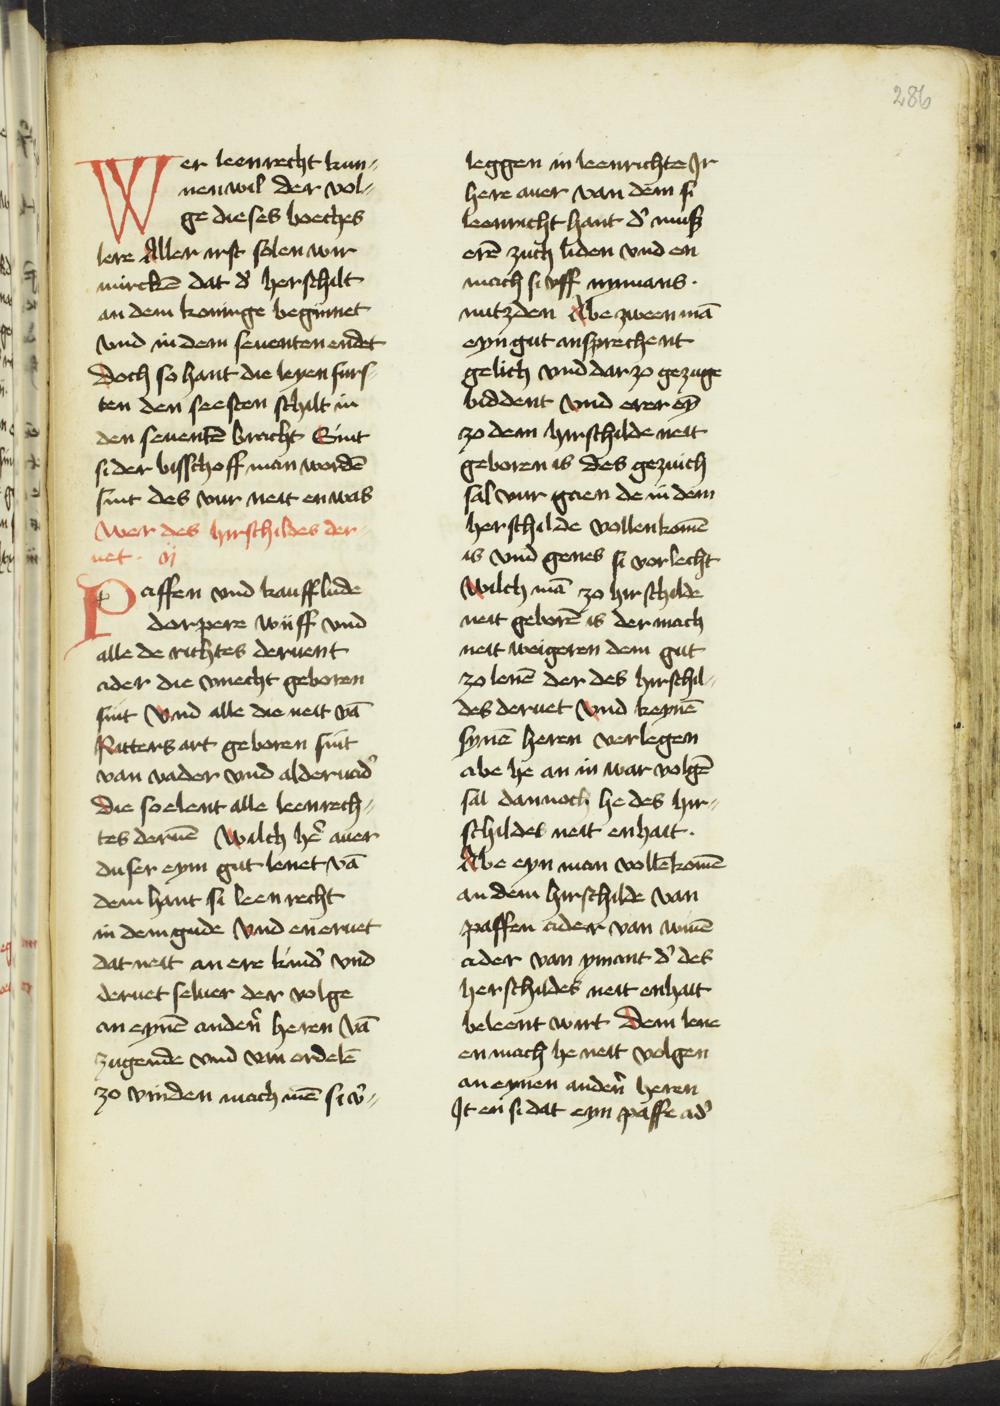 286
Wer leenrecht kun-
nen wil der vol-
ge dieses boeches
lere Aller irst solen wir
mircken dat d' herschilt
an dem koninge beginnet
vnd in dem seuenten endet
Doch so hant die leyen furs-
ten den seesten schilt in
den seuentē bracht Sint
si der bisschoff man wordē
sint des vur neit en was
Wer des hirschildes der-
uet . ij
Paffen vnd kaufflude
dorpere wijff vnd
alle de richtes deruent
ader die vnecht geboren
sint Vnd alle die neit vā
Ritters art geboren sint
van vader vnd alderuad'
Die soelent alle leenrech-
tes deruē Wilch h'e auer
duser eym gut lenet vā
dem hant si leenrecht
in dem gude Vnd en eruet
dat neit an ere kind' vnd
deruet seluer der volge
an eynē anderñ heren Vā
zugende vnd vm ordelē
zo vinden mach mē si v'-
leggen in leenrichte Ir
here auer van dem si
leenricht hant d' muß
erē zuch liden vnd en
mach si vff nymans .
nutzden Abe zween mā
eyn gut ansprechent
gelich vnd dar zo gezuge
biddent Vnd erer eȳ
zo dem hirschilde neit
geboren is des gezuich
sal vur gaen de in dem
herschilde vollenkomē
is vnd genes si vorlecht
Wilch mā zo hirschilde
neit geborē is der mach
neit weigeren dem gut
zo lenē der des hirschil-
des deruet Vnd keynē
synē heren verlegen
abe he an in war volgē
sal dannoch he des hir-
schildes neit enhait .
Abe eyn man vollēkomē
an dem hirschilde van
paffen ader van wiuē
ader van ymant d' des
herschildes neit enhait
beleent wirt Dem lene
en mach he neit volgen
an eynen anderñ heren
It en si dat eyn paffe ad'